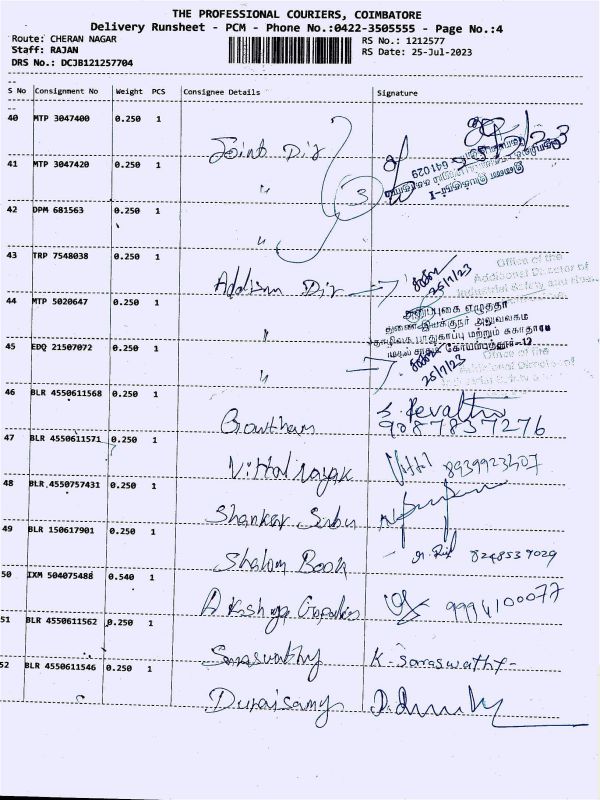 THE PROFESSIONAL COURIERS, COIMBATORE
Delivery Runsheet - PCM - Phone No.:0422-3505555 - Page No.:4
Route: CHERAN NAGAR
RS No.: 1212577
Staff: RAJAN
RS Date: 25-Jul-2023
DRS No.: DCJB121257704
S No Consignment No Weight PCS Consignee Details Signature
40 MTP 3047400 0.250 1 Joint Dir
41 MTP 3047420 0.250 1 "
3
641029
42 DPM 681563 0.250 1 "
43 TRP 7548038 0.250 1 Addition Dir
25/7/23
Office of the
Additional Director of
Industrial Safety and
44 MTP 5020647 0.250 1 "
அனுப்புகை எழுத்தர்
துணை இயக்குநர் அலுவலகம்
45 EDQ 21507072 0.250 1 "
25/7/23
Office of the
Additional Director of
46 BLR 4550611568 0.250 1 Gowtham S. Revathi
9087837276
47 BLR 4550611571 0.250 1 Vittal nayak Vittl
48 BLR 4550757431 0.250 1 Shankar
49 BLR 150617901 0.250 1 Shalom Book 8248537029
50 IXM 504075488 0.540 1 9994100077
51 BLR 4550611562 0.250 1 Saraswathy K-Saraswathy-
52 BLR 4550611546 0.250 1 Duraisamy